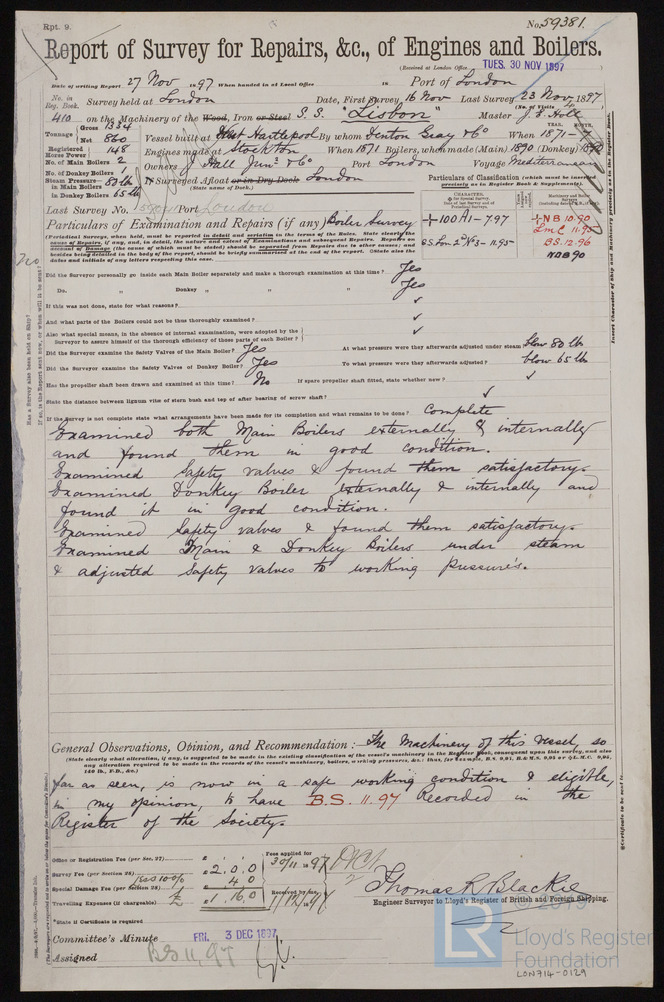 Rpt. 9.
No. 59381.
Report of Survey for Repairs, &c., of Engines and Boilers.
(Received at London Office TUES. 30 NOV 1897
Date of writing Report 27 Nov 1897 When handed in at Local Office 18 Port of London
No. in Reg. Book. Survey held at London Date, First Survey 16 Nov Last Survey 23 Nov 1897
(No. of Visits 4)
410 on the Machinery of the Wood, Iron or Steel S. S. "Lisbon" Master J. E. Holt
Tonnage Gross 1334
Net 860
Vessel built at West Hartlepool By whom Denton Gray & Co When 1871
YEAR. MONTH.
Registered Horse Power 148
Engines made at Stockton When 1871 Boilers, when made (Main) 1890 (Donkey) 1890
No. of Main Boilers 2
Owners J Hall Junr & Co Port London Voyage Mediterranean
No. of Donkey Boilers 1
Steam Pressure in Main Boilers 80 lb
in Donkey Boilers 65 lb
If Surveyed Afloat or in Dry Dock London
(State name of Dock.)
Particulars of Classification (which must be inserted precisely as in Register Book & Supplements).
Last Survey No. Port London
CHARACTER.
+100A1-7.97
S.S. Lon. 2nd No 3-11.95
+NB 10.90
LMC 11.95
B.S. 12.96
NDB 90
Particulars of Examination and Repairs (if any) Boiler Survey
(Periodical Surveys, when held, must be reported in detail and seriatim in the terms of the Rules. State clearly the
cause of Repairs, if any, and, in detail, the nature and extent of Examinations and subsequent Repairs. Repairs on
account of Damage (the cause of which must be stated) should be separated from Repairs due to other causes; and
besides being detailed in the body of the report, should be briefly summarised at the end of the report. State also the
dates and initials of any letter respecting this case.
Did the Surveyor personally go inside each Main Boiler separately and make a thorough examination at this time? Yes
Do. " Donkey " " " " Yes
If this was not done, state for what reasons? ✓
And what parts of the Boilers could not be thus thoroughly examined? ✓
Also what special means, in the absence of internal examination, were adopted by the
Surveyor to assure himself of the thorough efficiency of these parts of each Boiler? ✓
Did the Surveyor examine the Safety Valves of the Main Boiler? Yes At what pressure were they afterwards adjusted under steam blow 80 lb
Did the Surveyor examine the Safety Valves of Donkey Boiler? Yes To what pressure were they afterwards adjusted? blow 65 lb
Has the propeller shaft been drawn and examined at this time? No If spare propeller shaft fitted, state whether new? ✓
State the distance between lignum vitæ of stern bush and top of after bearing of screw shaft? ✓
If the Survey is not complete state what arrangements have been made for its completion and what remains to be done? Complete
Examined both Main Boilers externally & internally
and found them in good condition.
Examined Safety valves & found them satisfactory.
Examined Donkey Boiler externally & internally and
found it in good condition.
Examined Safety valves & found them satisfactory.
Examined Main & Donkey Boilers under steam
& adjusted Safety valves to working pressures.
General Observations, Opinion, and Recommendation: The Machinery of this vessel, so
(State clearly what alteration, if any, is suggested to be made in the existing classification of the vessel's machinery in the Register Book, consequent upon this survey, and also
any alteration required to be made in the records of the vessel's machinery, boilers, working pressures, &c.: thus, for example, B.S. 9,91, B.&M.S. 9,95 or L.M.C. 9,95,
140 lb., F.D., &c.)
far as seen, is now in a safe working condition & eligible,
in my opinion, to have B.S. 11.97 Recorded in the
Register of the Society.
Office or Registration Fee (per Sec. 27)
Survey Fee (per Section 28) £2.0.0
less 10% 4.0
Special Damage Fee (per Section 28)
Travelling Expenses (if chargeable) £1.16.0
Fees applied for
30/11 1897
Received by me,
1/12 1897
Thomas R Blackie
Engineer Surveyor to Lloyd's Register of British and Foreign Shipping.
*State if Certificate is required
Committee's Minute FRI. 3 DEC 1897
Assigned B.S 11.97
LR Lloyd's Register
Foundation
LON714-0129